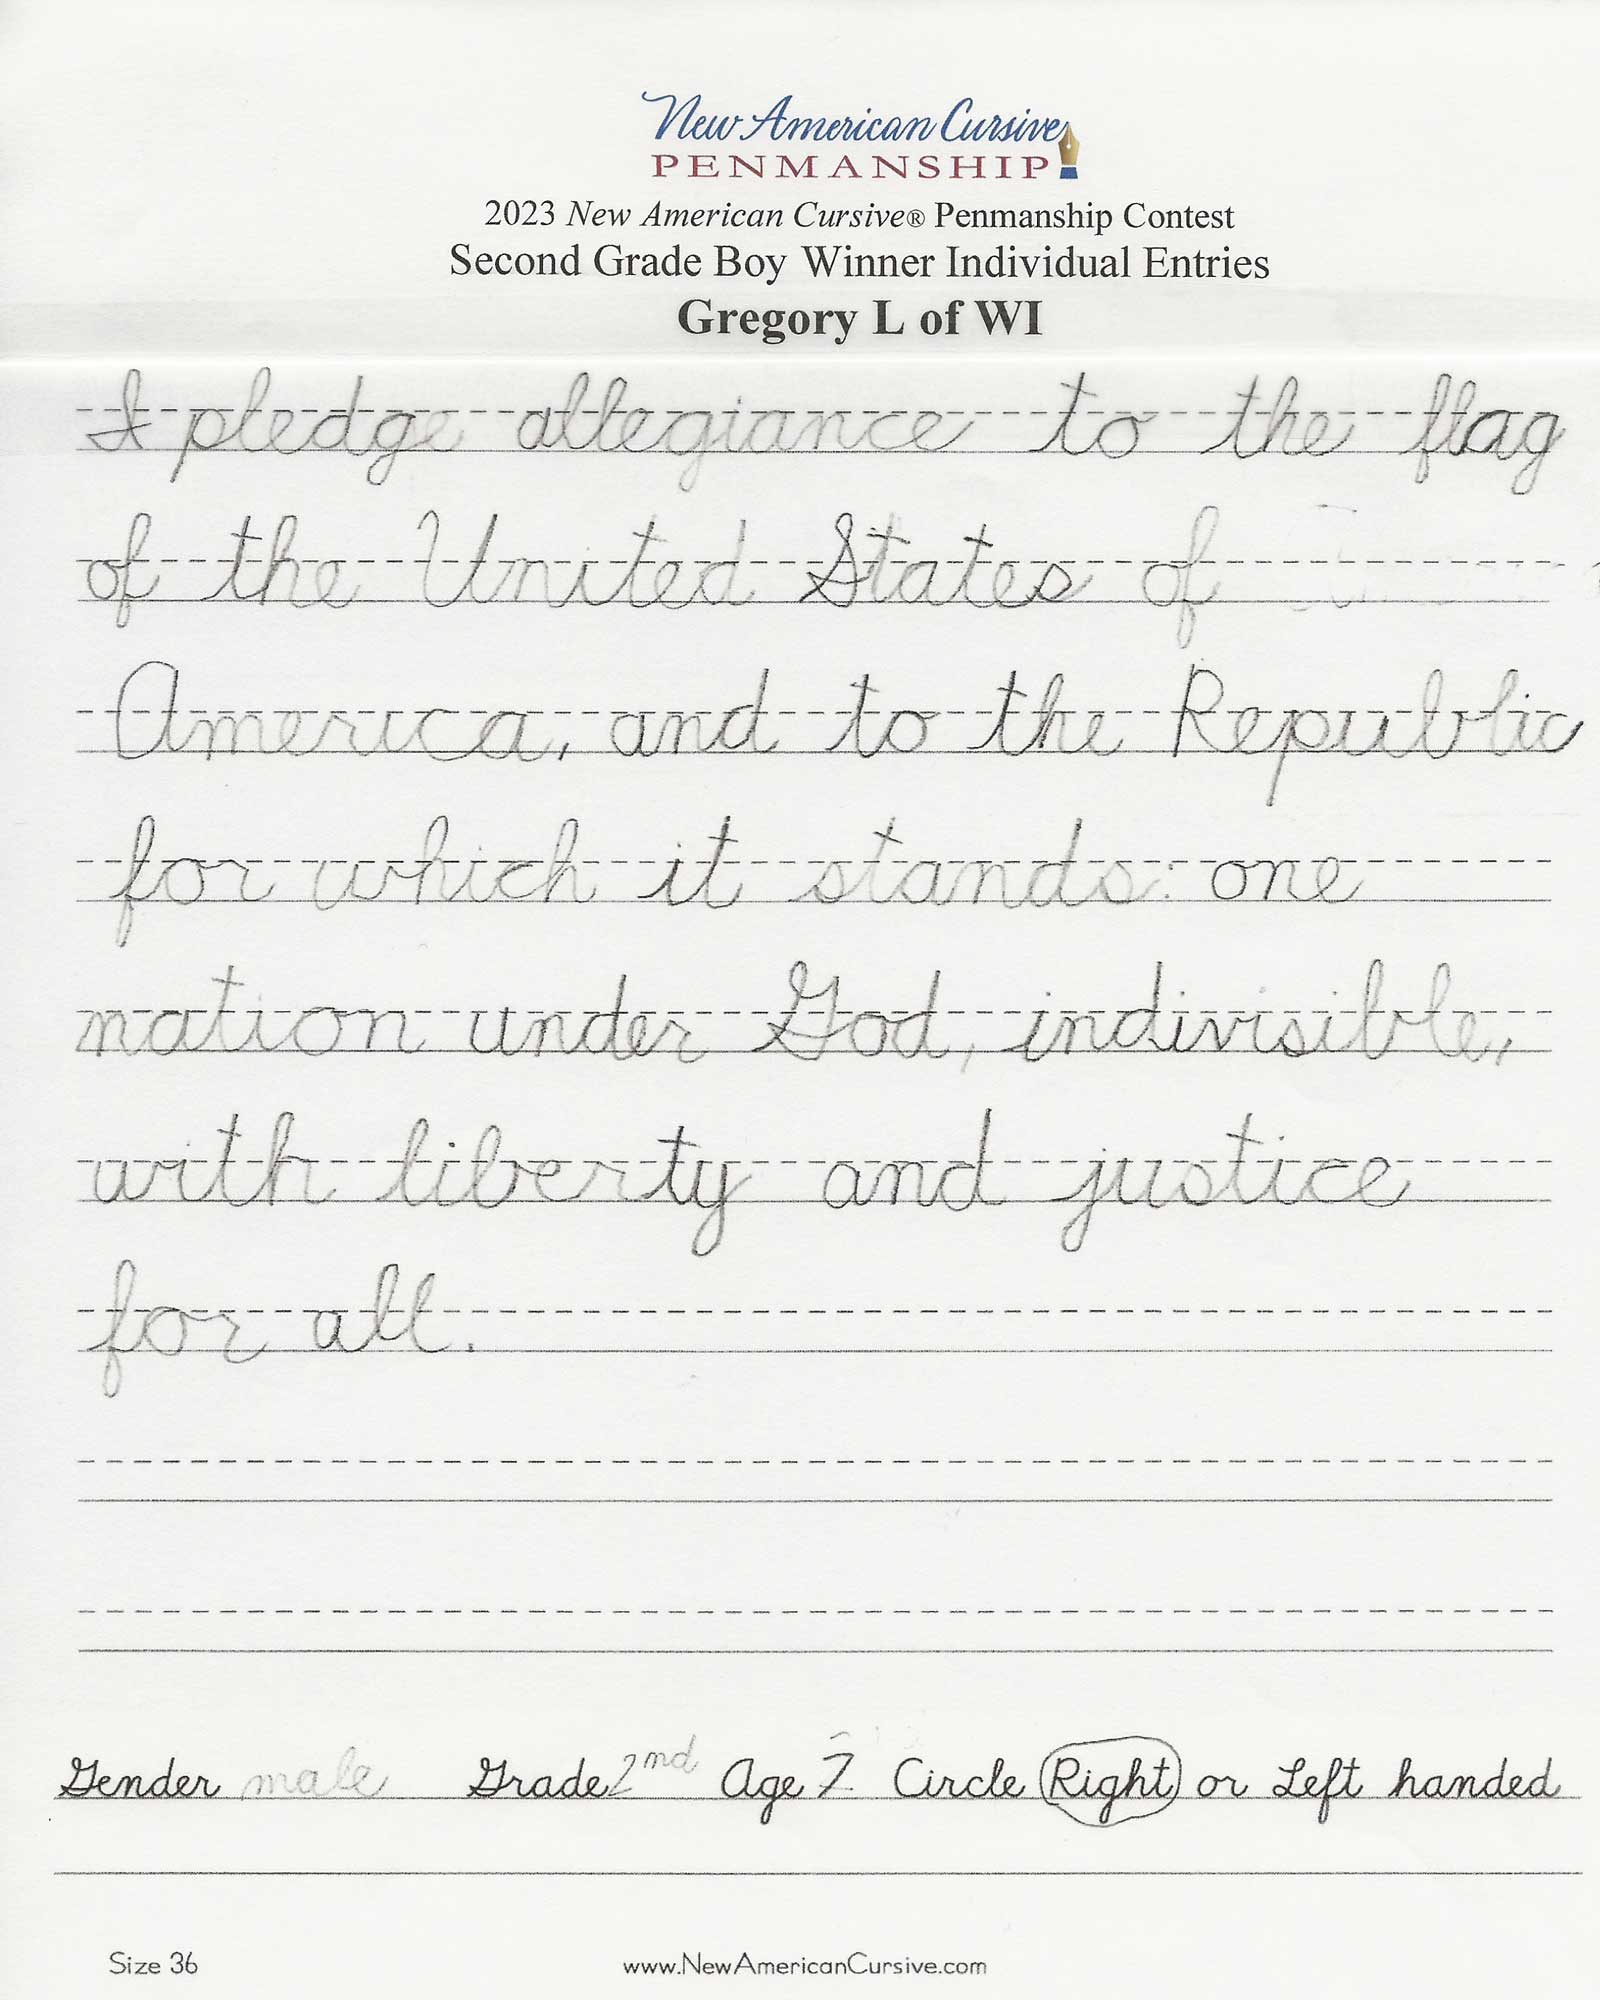 New American Cursive
PENMANSHIP
2023 New American Cursive® Penmanship Contest
Second Grade Boy Winner Individual Entries
Gregory L of WI
I pledge allegiance to the flag
of the United States of
America, and to the Republic
for which it stands: one
nation under God, indivisible,
with liberty and justice
for all.
Gender male Grade 2nd Age 7 Circle Right or Left handed
Size 36 www.NewAmericanCursive.com